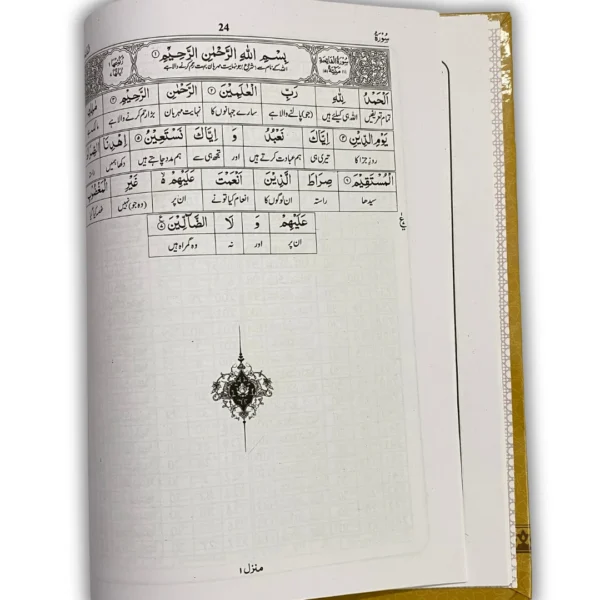 24
سُوْرَةُ
سُوْرَةُ الْفَاتِحَةِ
بِسْمِ اللّٰهِ الرَّحْمٰنِ الرَّحِيْمِ ۝١
اللہ کے نام سے
اَلْحَمْدُ لِلّٰهِ رَبِّ الْعٰلَمِيْنَ ۝٢ الرَّحْمٰنِ الرَّحِيْمِ ۝٣
تمام تعریفیں اللہ ہی کیلئے ہیں (جو) پالنے والا ہے سارے جہانوں کا نہایت مہربان بڑا رحم کرنے والا ہے
يَوْمِ الدِّيْنِ ۝٤ اِيَّاكَ نَعْبُدُ وَ اِيَّاكَ نَسْتَعِيْنُ ۝٥ اِهْدِنَا
روز جزا کا تیری ہی ہم عبادت کرتے ہیں اور تجھ ہی سے ہم مدد چاہتے ہیں دکھا ہمیں
الْمُسْتَقِيْمَ ۝٦ صِرَاطَ الَّذِيْنَ اَنْعَمْتَ عَلَيْهِمْ غَيْرِ
سیدھا راستہ ان لوگوں کا انعام کیا تو نے ان پر (وہ جو) نہیں
عَلَيْهِمْ وَ لَا الضَّآلِّيْنَ
ان پر اور نہ وہ گمراہ ہیں
منزل ١